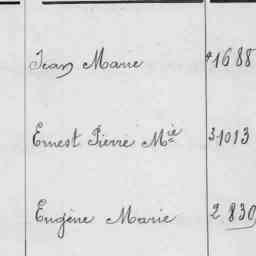 Jean Marie 41688
Ernest Pierre Mie 31013
Eugène Marie 2 830